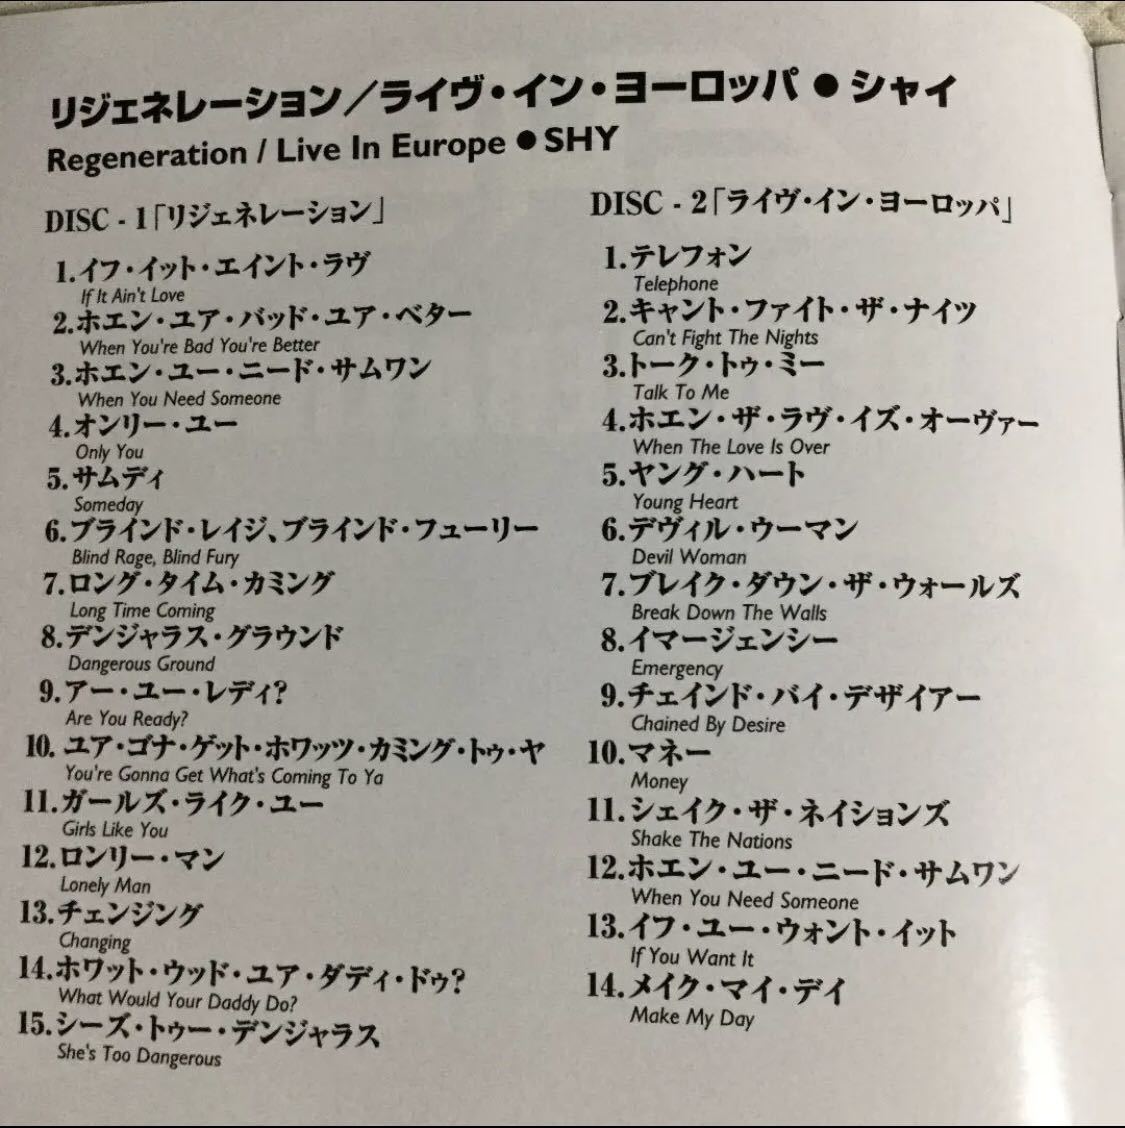 リジェネレーション／ライヴ・イン・ヨーロッパ ● シャイ
Regeneration / Live In Europe ● SHY
DISC - 1「リジェネレーション」
1.イフ・イット・エイント・ラヴ
If It Ain't Love
2.ホエン・ユア・バッド・ユア・ベター
When You're Bad You're Better
3.ホエン・ユー・ニード・サムワン
When You Need Someone
4.オンリー・ユー
Only You
5.サムディ
Someday
6.ブラインド・レイジ、ブラインド・フューリー
Blind Rage, Blind Fury
7.ロング・タイム・カミング
Long Time Coming
8.デンジャラス・グラウンド
Dangerous Ground
9.アー・ユー・レディ?
Are You Ready?
10. ユア・ゴナ・ゲット・ホワッツ・カミング・トゥ・ヤ
You're Gonna Get What's Coming To Ya
11.ガールズ・ライク・ユー
Girls Like You
12.ロンリー・マン
Lonely Man
13.チェンジング
Changing
14.ホワット・ウッド・ユア・ダディ・ドゥ?
What Would Your Daddy Do?
15.シーズ・トゥー・デンジャラス
She's Too Dangerous
DISC - 2「ライヴ・イン・ヨーロッパ」
1.テレフォン
Telephone
2.キャント・ファイト・ザ・ナイツ
Can't Fight The Nights
3.トーク・トゥ・ミー
Talk To Me
4.ホエン・ザ・ラヴ・イズ・オーヴァー
When The Love Is Over
5.ヤング・ハート
Young Heart
6.デヴィル・ウーマン
Devil Woman
7.ブレイク・ダウン・ザ・ウォールズ
Break Down The Walls
8.イマージェンシー
Emergency
9.チェインド・バイ・デザイアー
Chained By Desire
10.マネー
Money
11.シェイク・ザ・ネイションズ
Shake The Nations
12.ホエン・ユー・ニード・サムワン
When You Need Someone
13.イフ・ユー・ウォント・イット
If You Want It
14.メイク・マイ・デイ
Make My Day